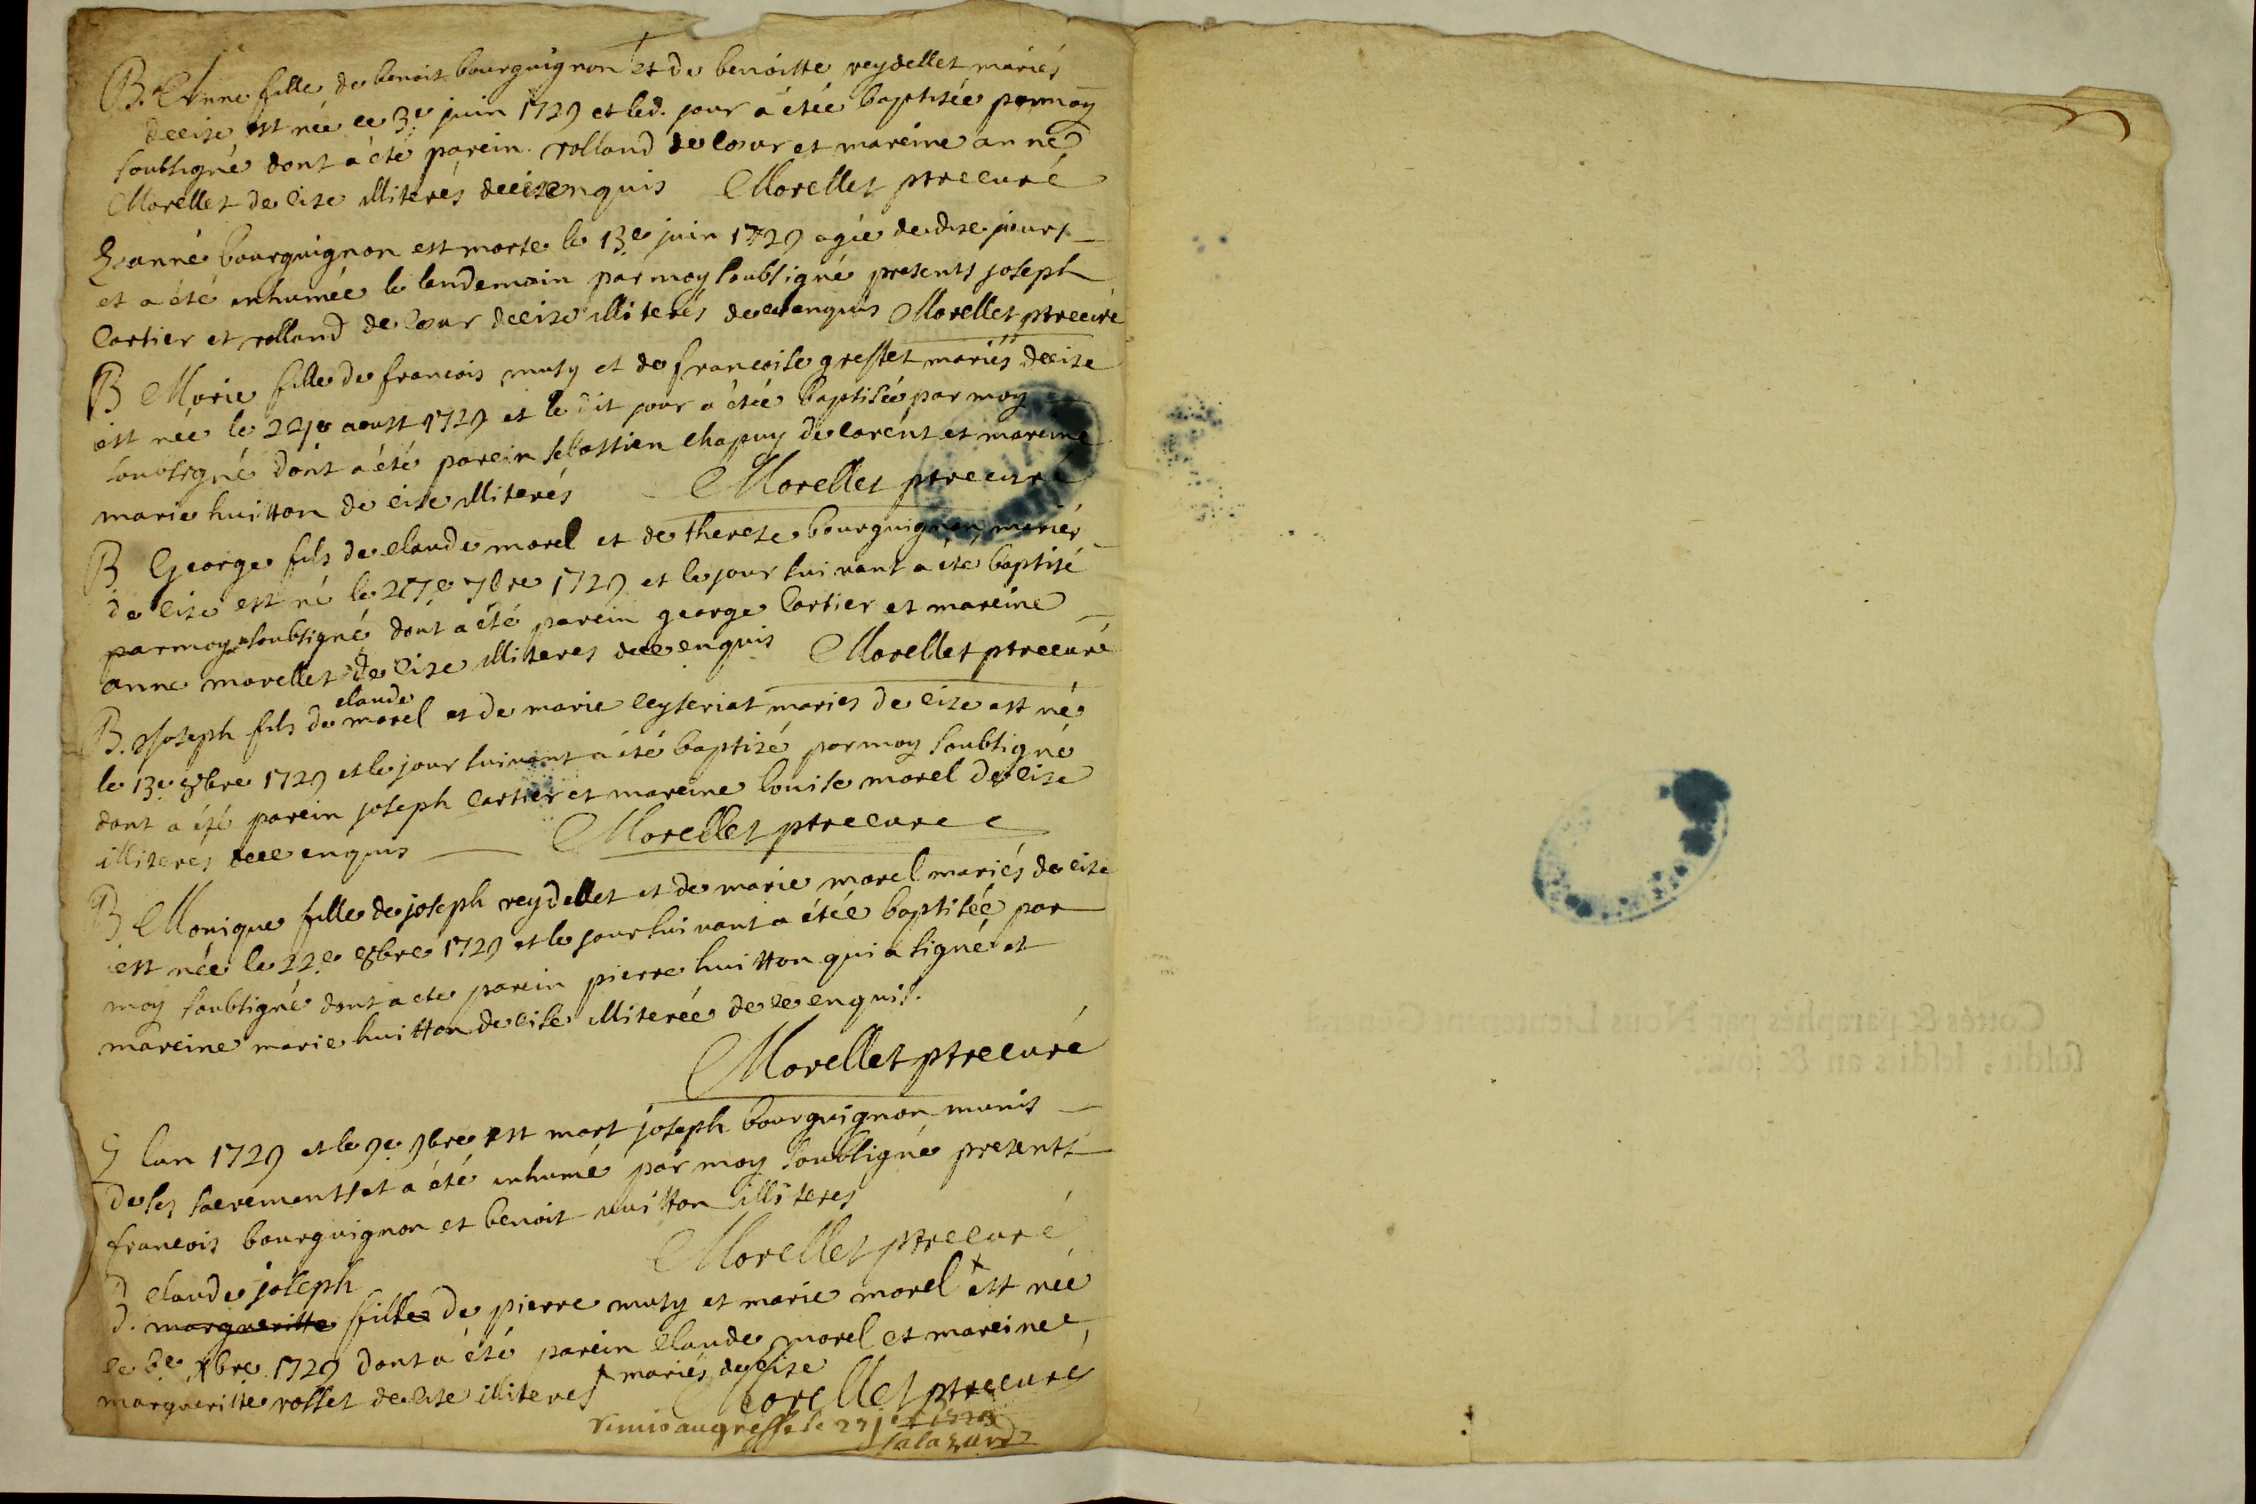 B. Anne fille de benoit bourguignon et de benoitte reydellet mariés
de cize est née le 3e juin 1729 et led. jour a étée baptisée par moy
soubsigné dont a été parein rolland de coeur et mareine anne
Morellet de cize illiterés de ce enquis Morellet ptre curé
S. anne bourguignon est morte le 13e juin 1729 agée de dixe jours
et a été inhumée le lendemain par moy soubsigné presents joseph
Cartier et rolland de coeur de cize illiterés de ce enquis Morellet ptre curé
B Marie fille de francois musy et de francoise greffet mariés de cize
est née le aoust 1729 et le dit jour a étée baptisée par moy
soubsigné dont a été parein sebastien chapuy de corent et mareine
marie huitton de cise illiterés Morellet ptre curé
B George fils de claude morel et de therese bourguignon mariés
de cize est né le 27e 7bre 1729 et le jour suivant a été baptisé
par moy soubsigné dont a été parein george Cartier et mareine
anne morellet de cize illiteres de ce enquis Morellet ptre curé
claude
B. Joseph fils de morel et de marie ceyseriat mariés de cize est né
le 13e 8bre 1729 et le jour suivant a été baptisé par moy soubsigné
dont a été parein joseph Cartier et mareine louise morel de cize
illiterés de ce enquis Morellet ptre curé
B. Monique fille de joseph reydellet et de marie morel mariés de cize
est née le 22e 8bre 1729 et le jour suivant a étée baptisée par
moy soubsigné dont a ete parein pierre huitton qui a signé et
mareine marie huitton de cise illiterée de ce enquis.
Morellet ptre curé
S lan 1729 et le 9e 9bre est mort joseph bourguignon munis
de ses sacrements et a été inhumé par moy soubsigné presents
francois bourguignon et benoit uuitton illiteres
Morellet ptre curé
claude joseph
B. margueritte fille de pierre musy et marie morel + est née
le 6e xbre 1729 dont a été parein claude morel et mareine
margueritte rosset de cise illiteres + mariés de cize
Morellet ptre curé
remis au greffe le
salazard
Cottés & paraphés par Nous Lieutenant G
susdit, lesdits an & jour.